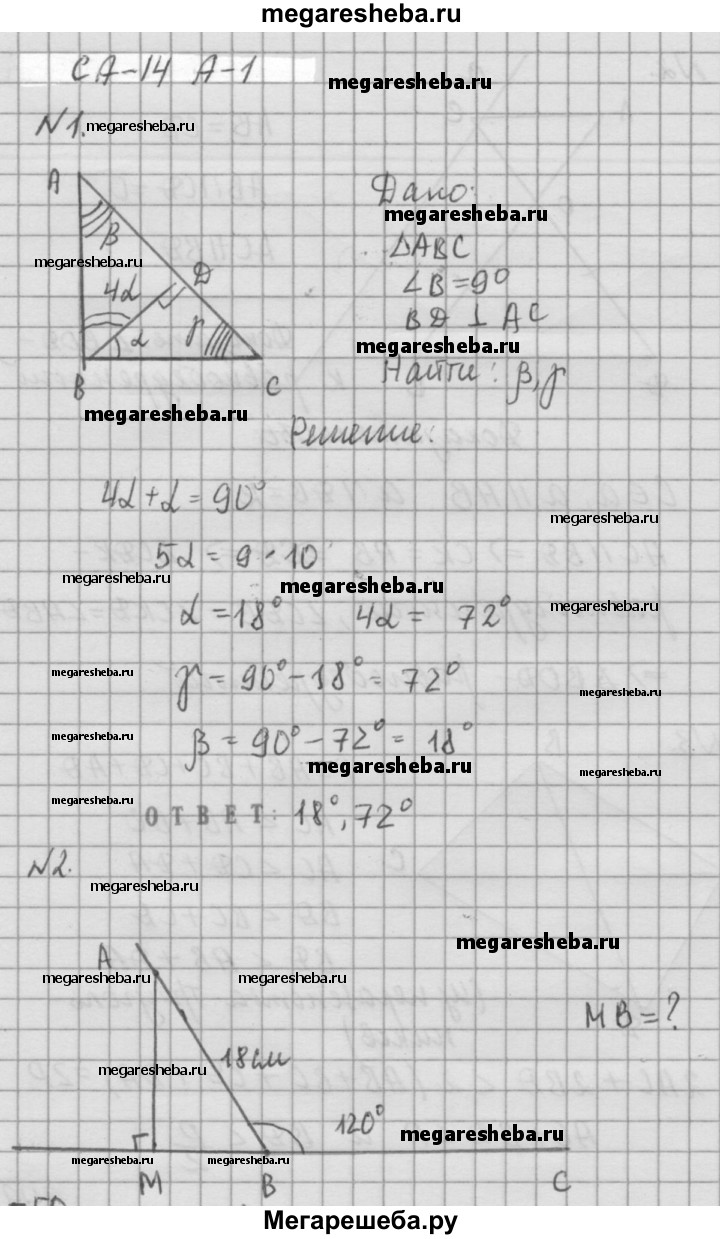 megaresheba.ru
СА-14 А-1
megaresheba.ru
№1. megaresheba.ru
A
Дано:
megaresheba.ru
β
ΔABC
megaresheba.ru
4α
D
∠B=90
BD ⊥ AC
α
γ
megaresheba.ru
B
C
Найти: β, γ
megaresheba.ru
Решение:
4α+α=90°
megaresheba.ru
5α = 9·10
megaresheba.ru
megaresheba.ru
α=18°, 4α = 72°
megaresheba.ru
γ=90°-18°=72°
megaresheba.ru
megaresheba.ru
β=90°-72°=18°
megaresheba.ru
megaresheba.ru
megaresheba.ru
megaresheba.ru
ОТВЕТ: 18°, 72°
№2.
megaresheba.ru
A
megaresheba.ru
megaresheba.ru
megaresheba.ru
MB=?
18см
megaresheba.ru
120°
megaresheba.ru
megaresheba.ru
megaresheba.ru
M
B
C
Мегарешеба.ру